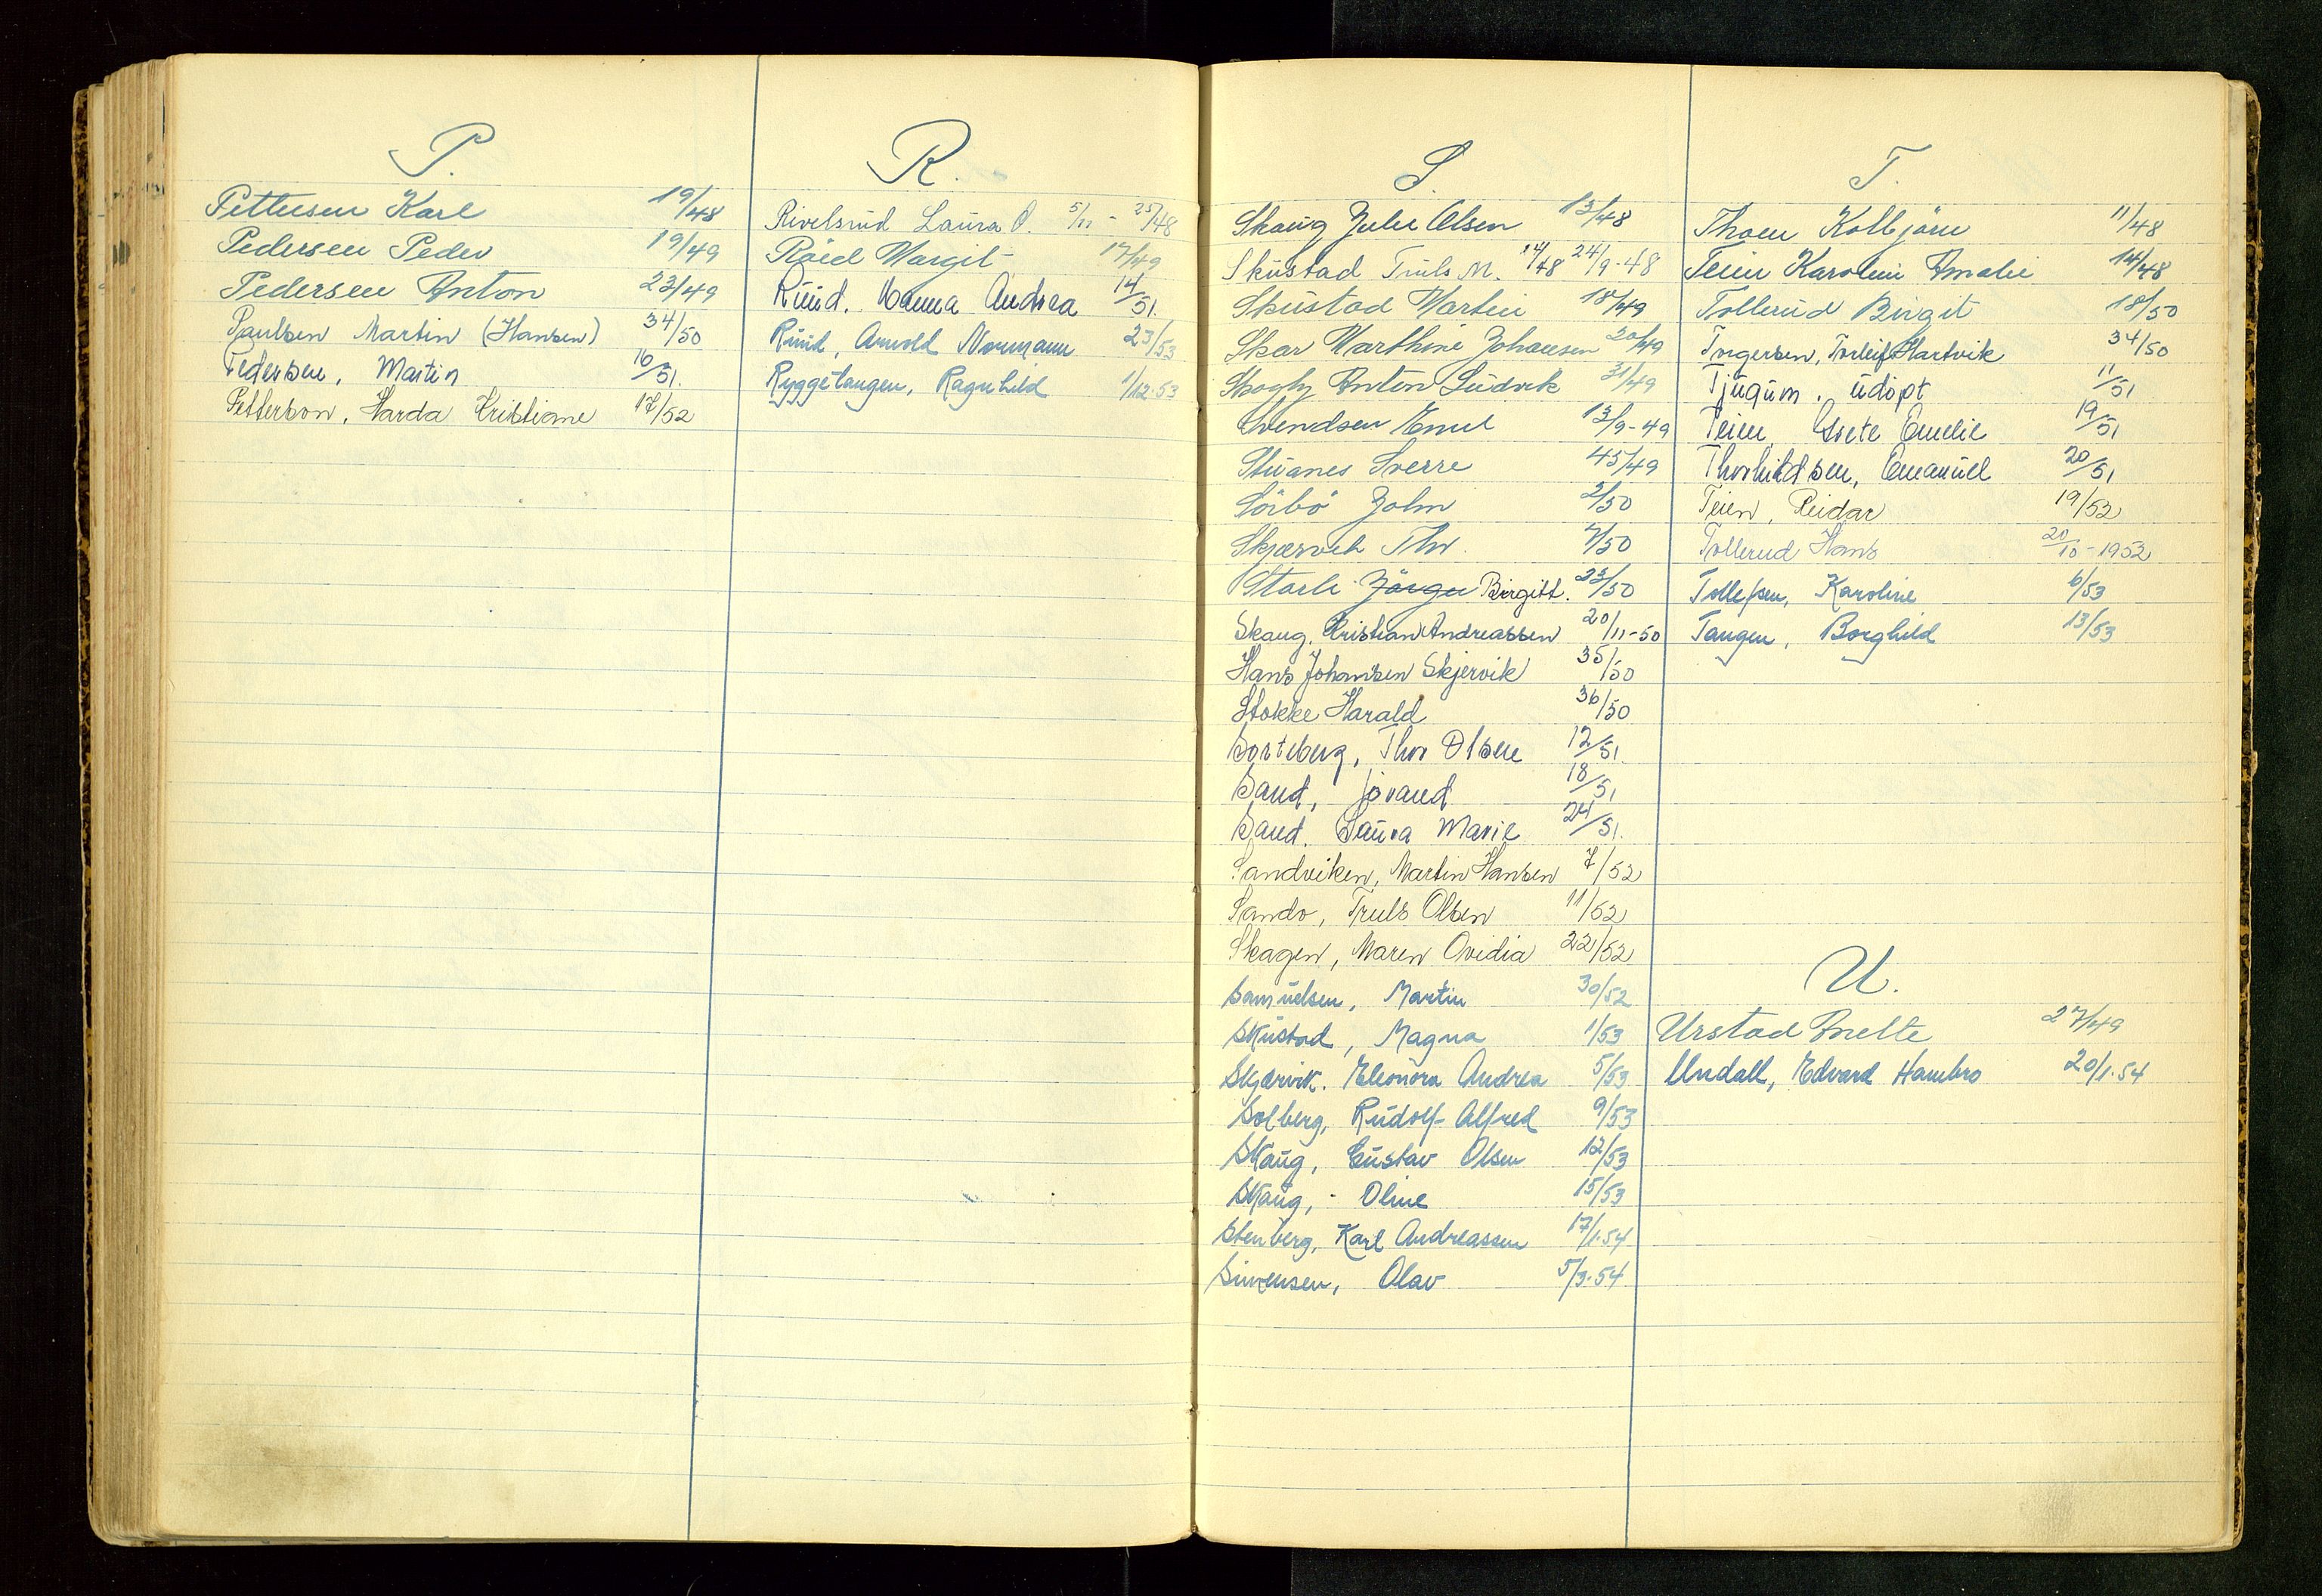 P.
Pettersen Karl 19/48
Pedersen Peder 19/49
Pedersen Anton 23/49
Paulsen Martin (Hansen) 34/50
Pedersen, Martin 16/51.
Petterson, Harda Kristiane 17/52
R.
Rivelsrud Laura O. 5/11 - 25/48
Röed Margit 17/49
Ruud. Hanna Andrea 14/51.
Ruud, Arnold Normann 23/53
Ryggetangen, Ragnhild 1/12.53
S.
Skaug Julie Olsen 13/48
Skustad Truls M. 14/48 24/9-48
Skustad Martin 18/49
Skar Marthine Johansen 30/49
Skogly Anton Ludvik 31/49
Svendsen Emil 13/9-49
Stuanes Sverre 45/49
Sörbö John 2/50
Skjærvik Thv. 7/50
Storli Jörgen Birgitt. 23/50
Skaug, Kristian Andreassen 20/11-50
Hans Johansen Skjervik 35/50
Stokke Harald 36/50
Sorteberg, Thor Olsen 12/51.
Sand, Jörand 18/51
Sand. Laura Marie 24/51.
Sandviken, Martin Hansen 7/52
Sando, Truls Olsen 11/52
Skagen, Maren Ovidia 22/52
Samuelsen, Martin 30/52
Skustad, Magna 1/53
Skjærvik. Eleonora Andrea 5/53
Solberg, Rudolf Alfred 9/53
Skaug, Gustav Olsen 12/53
Skaug, - Oline 15/53
Stenberg, Karl Andreassen 17/1.54
Sivensen, Olav 5/3.54
T.
Thoen Kolbjörn 11/48
Teien Karoline Amalie 14/48
Tollerud Birgit 18/50
Torgersen, Torleif Hartvik 34/50
Tjugum. udöpt 11/51
Teien, Grete Emelie 19/51
Thorhildsen, Emanuel 20/51
Teien, Reidar 19/52
Tollerud Hans 20/10-1952
Tollefsen, Karoline 6/53
Tangen, Borghild 13/53
U.
Urstad Anette 27/49
Undall, Edvard Hambro 20/1.54